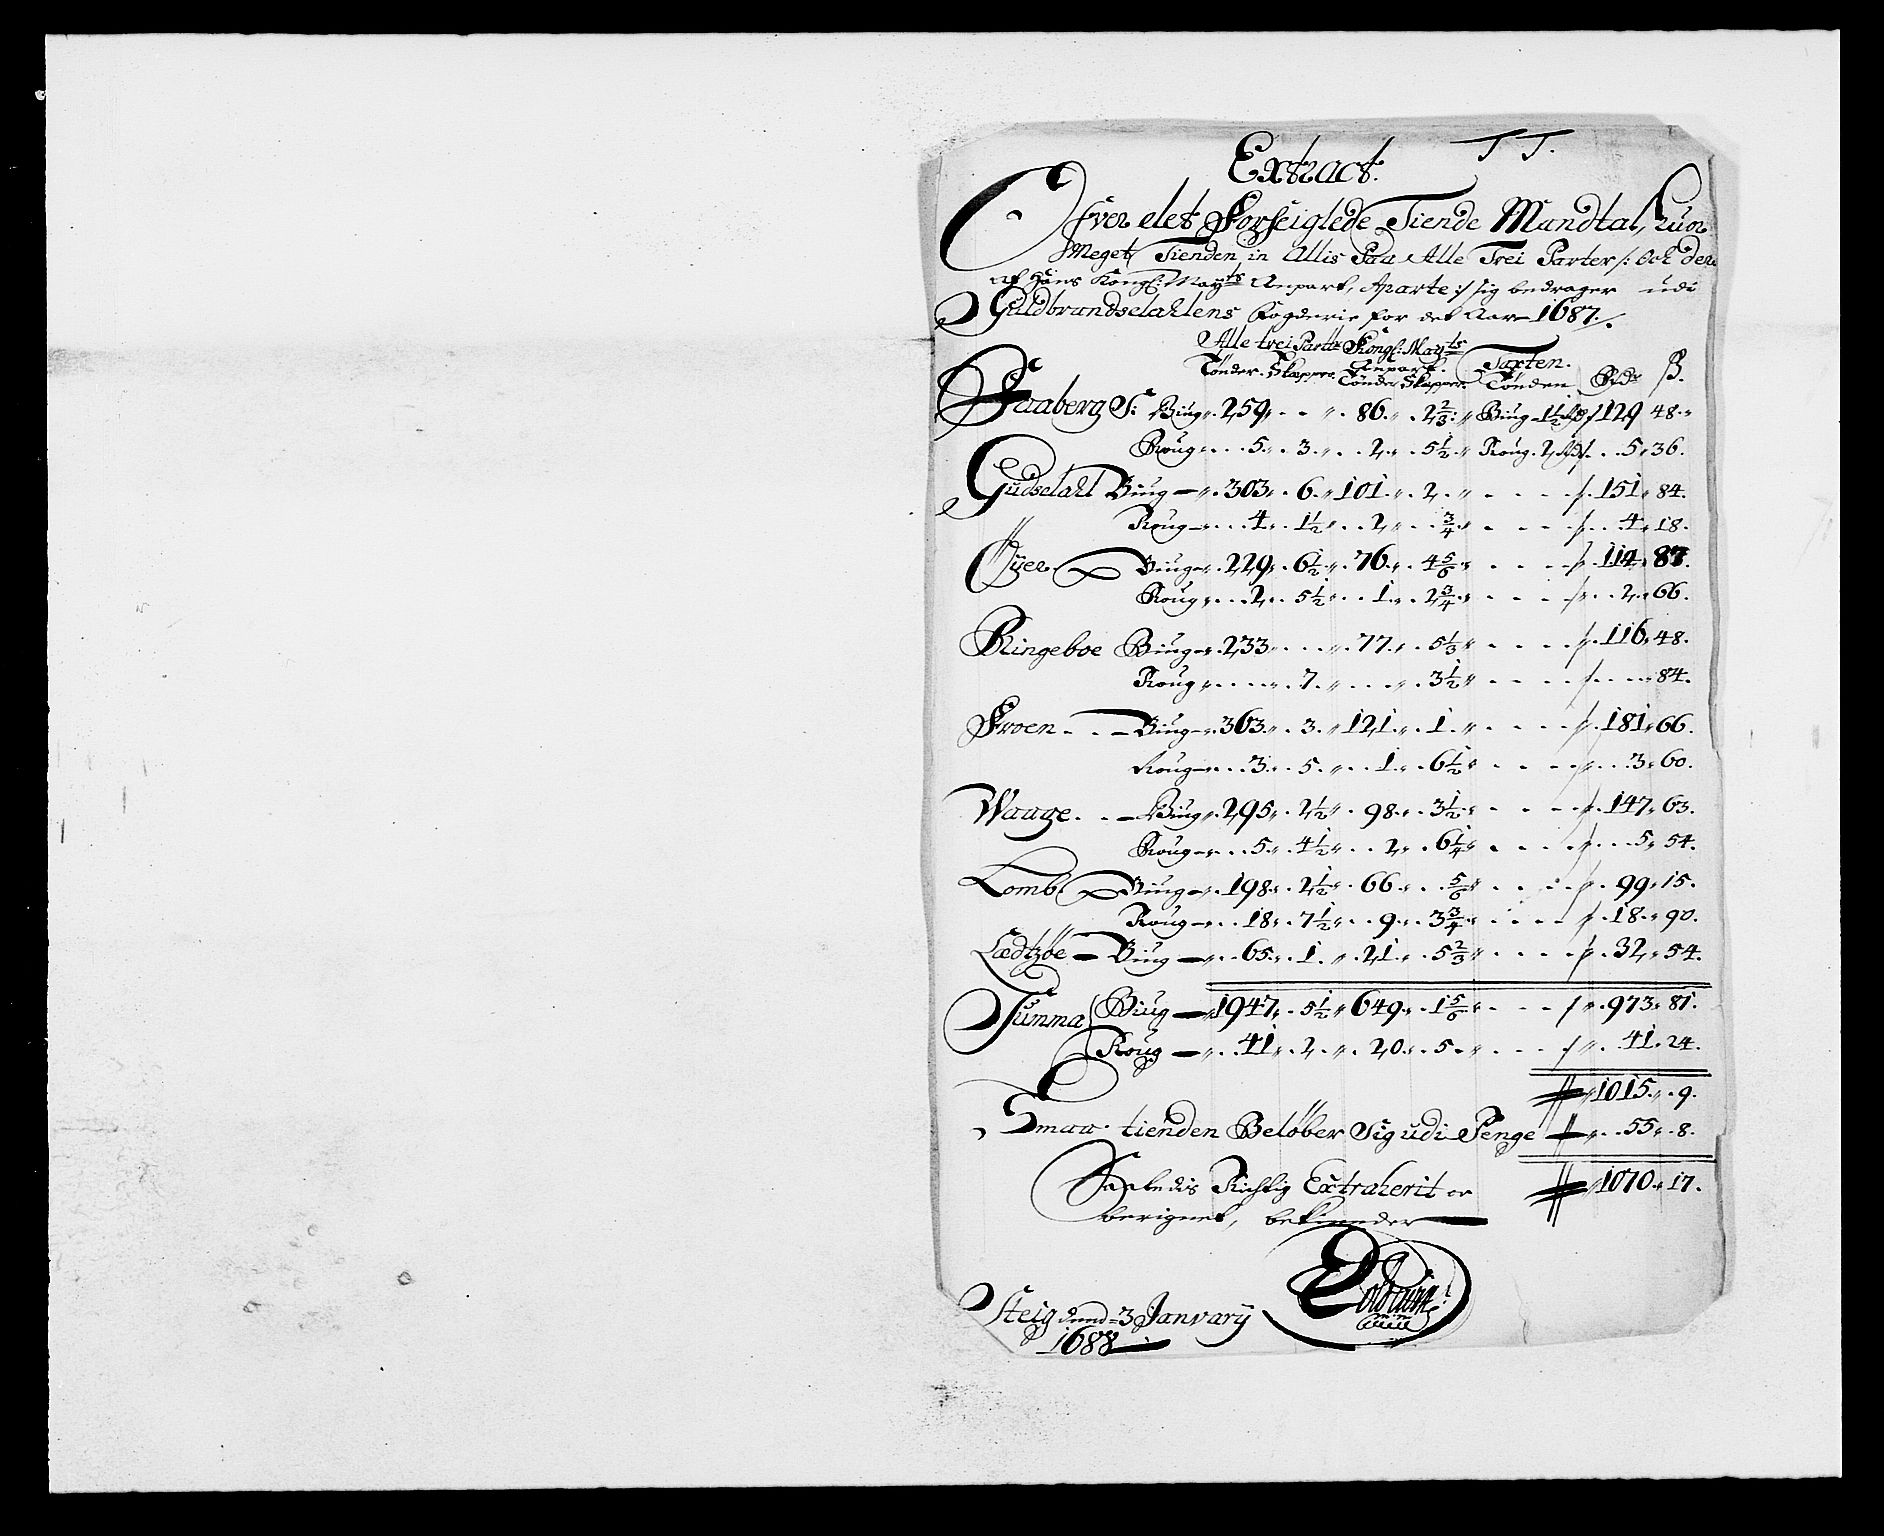 Extract. T T.
Ofver det Forseiglede Tiende Mandtal, huor
Meget Tienden in Allis Paa Alle Trei Parter /: Och der
af Hans Kongl: Mayts Anpart, Aparte :/ sig bedrager udi
Guldbrandsdahlens Fogderie for det Aar 1687 /.
Alle trei Parter Kongl: Mayts
Anpart. Taxten.
Tønder. Skepper. Tønder Skepper. Tønden Rdr ß.
Faaberg S: Biug 259 . . 86. 2 2/3 Biug 1 1/2 Rdr 129 48.
Roug 5. 3. 2. 5 1/2 Roug. 2 Rdr 5. 36.
Gudsdahl Biug 303. 6. 101. 2. 151. 84.
Roug 4. 1 1/2 2. 3/4 4. 18.
Øyer Biug 229. 6 1/2 76. 4 5/6 114. 87.
Roug 2. 5 1/2 1. 2 3/4 2. 66.
Ringeboe Biug 233. . 77. 5 1/3 116. 48.
Roug . 7. . 3 1/2 . 84.
Froen Biug 363. 3. 121. 1. 181. 66.
Roug 3. 5. 1. 6 1/2 3. 60.
Waage Biug 295. 2 1/2 98. 3 1/2 147. 63.
Roug 5. 4 1/2 2. 6 1/4 5. 54.
Lomb Biug 198. 2 1/2 66. 5/6 99. 15.
Roug 18. 7 1/2 9. 3 3/4 18. 90.
Lædtzøe Biug 65. 1. 21. 5 2/3 32. 54.
Summa Biug 1947. 5 1/2 649. 1 5/6 973. 81.
Roug 41. 2. 20. 5. 41. 24.
1015. 9.
Smaa tienden Beløber Sig udi Penge 55. 8.
Saaledis Rigtig Extraherit or 1070. 17.
berignet, bekiender
Steig dend 3 January
1688